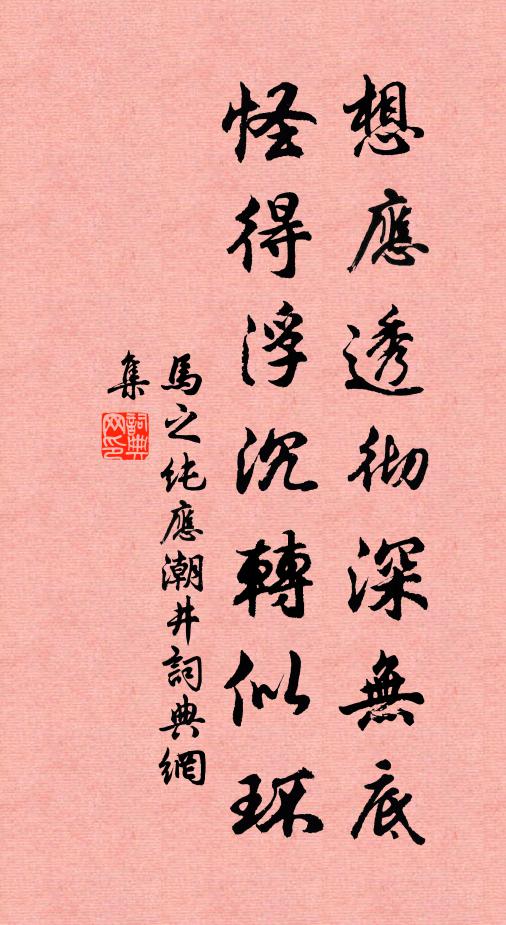 想應透彻深無底
怪得浮沉轉似环
馬之纯應潮井詞典網
集
詞典网印